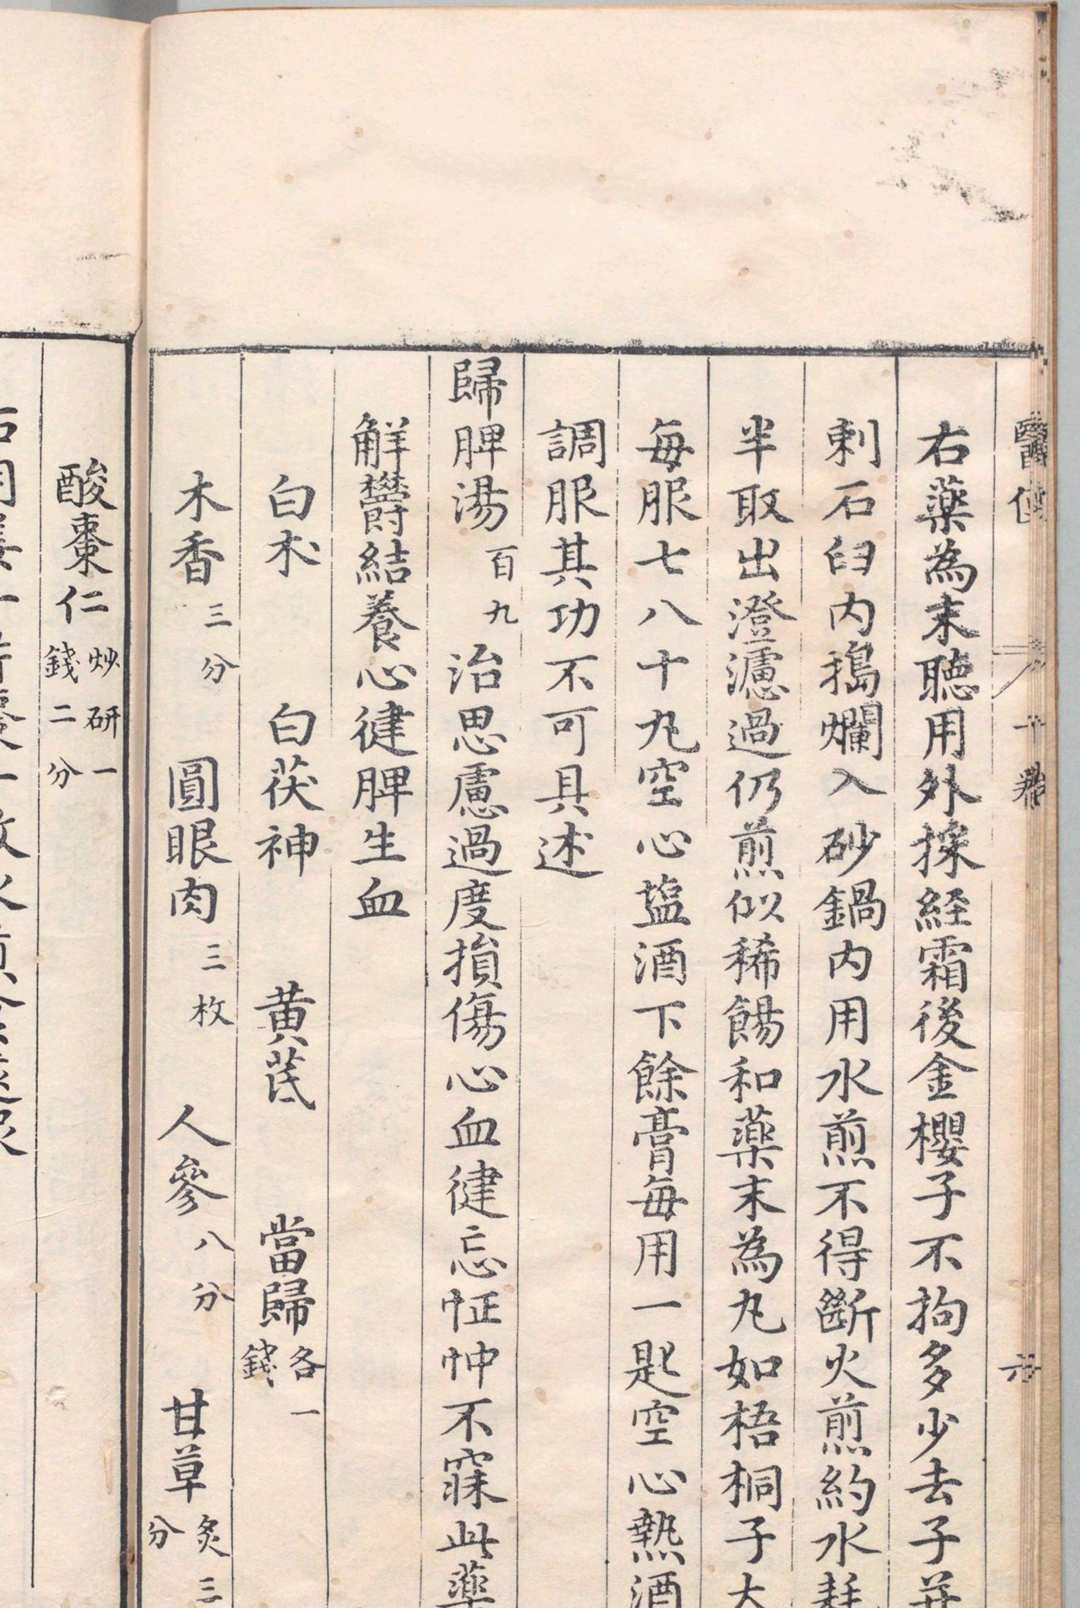 右薬為末聴用外採経霜後金櫻子不拘多少去子并
刺石臼内搗爛入砂鍋内用水煎不得断火煎約水耗
半取出澄濾過仍煎似稀餳和薬末為丸如梧桐子大
毎服七八十丸空心塩酒下餘膏毎用一匙空心熱酒
調服其功不可具述
歸脾湯百九 治思慮過度損傷心血健忘怔忡不寐此薬
解欝結養心健脾生血
白朮 白茯神 黄芪 當歸各一錢
木香三分 圓眼肉三枚 人參八分 甘草炙三分
酸棗仁炒研一錢二分